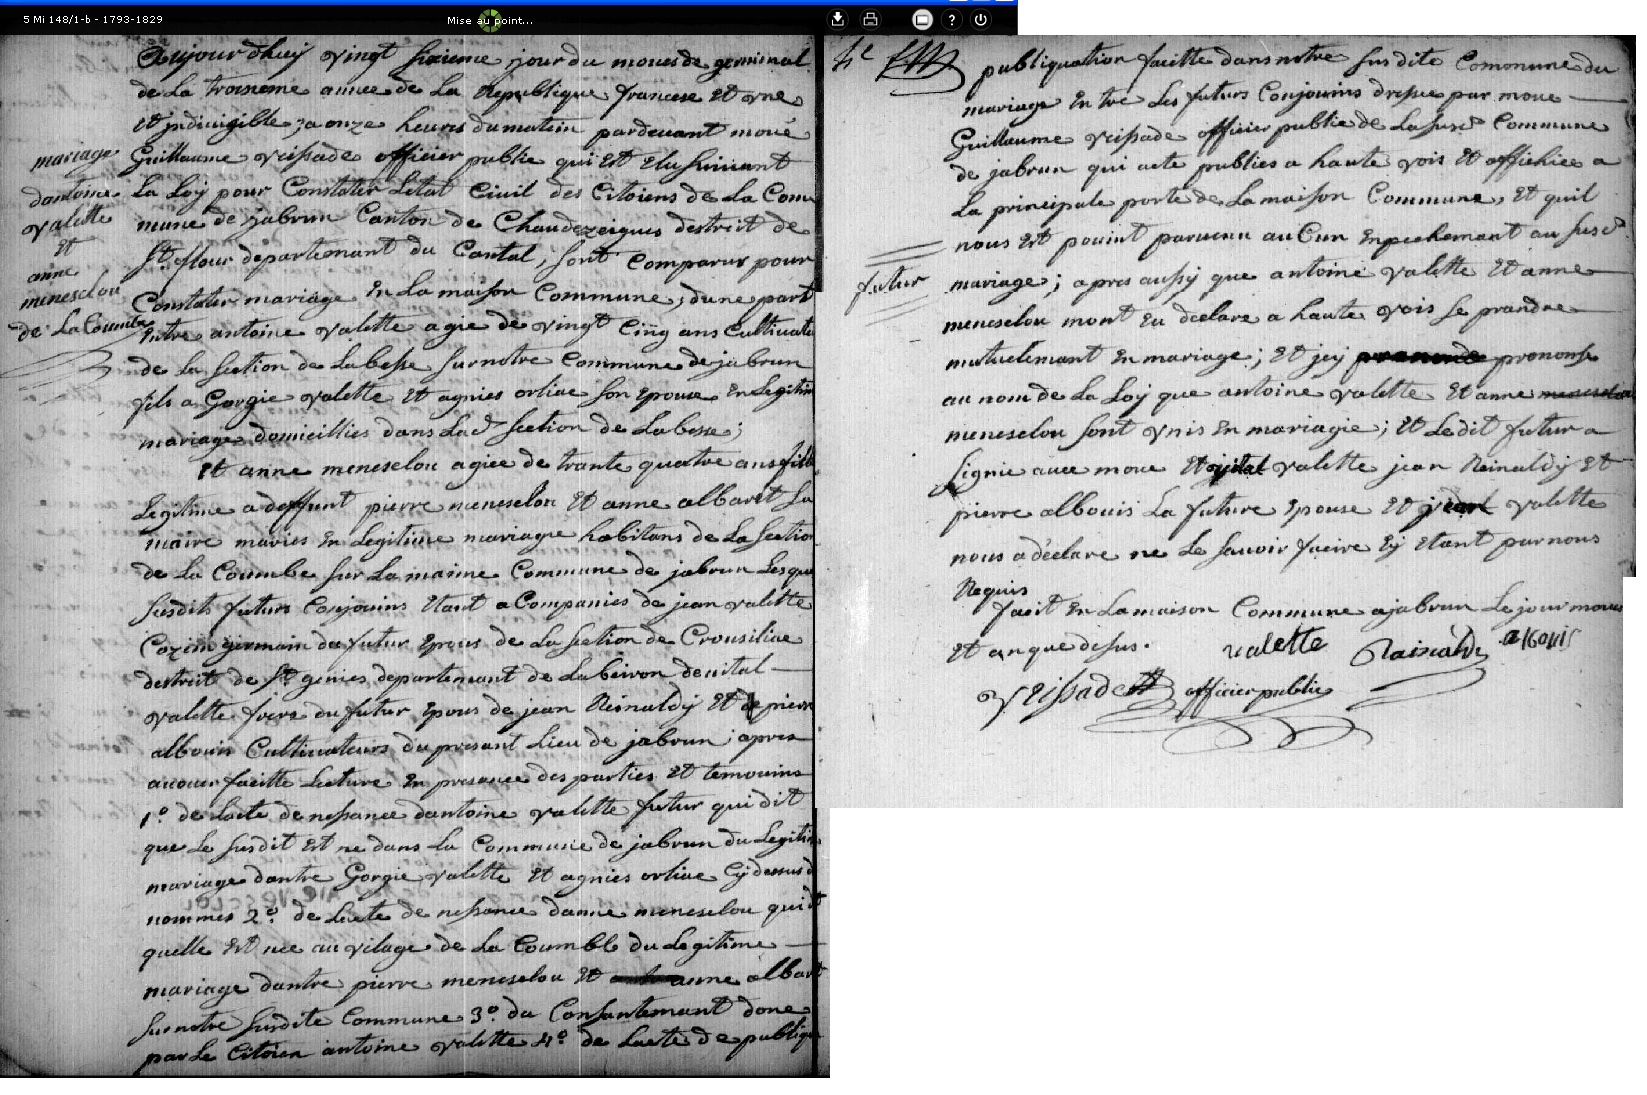 5 Mi 148/1-b - 1793-1829
Mise au point...
?
mariage
dantoine
valette
Et
anne
meneselou
de La Coumbe
Aujourdhuy vingt sixieme jour du moues de germinal
de La troisieme annee de La Republique francese Et une
Et jndivigible ; a onze heures du matin pardevant moue
Guillaume veissade officier public qui Est Elu suivant
La Loy pour Constater Letat Civil des Citoiens de La Com
mune de jabrun Canton de Chaudezeigues destrit de
St flour departemant du Cantal, sont Comparus pour
Constater mariage En La maison Commune, dune part
Entre antoine valette agie de vingt Cinq ans Cultivate
de La section de Labesse sur notre Commune de jabrun
fils a Gorgie valette Et agnies orliac son Epouse En Legitim
mariage domicillies dans Lad section de Labesse ;
Et anne meneselou agiee de trante quatre ans fille
Legitime a deffunt pierre meneselou Et anne albaret sa
maire maries En Legitime mariage habitans de La section
de La Coumbe sur La maime Commune de jabrun Les que
susdits futurs Conjouins Etant a Companies de jean valette
Cozin germain du futur Epous de La section de Crousiliac
destrit de St genies departemant de Labeiron de vital
valette frere du futur Epous de jean Reinaldy Et de pierre
albouis Cultivateurs du presant Lieu de jabrun ; apres
avouir faitte Lecture En presance des parties Et temouins
1° de Lacte de nessance dantoine valette futur qui dit
que Le susdit Est ne dans La Commune de jabrun du Legitim
mariage dantre Gorgie valette Et agnies orliac Cy dessus d
nommes 2° de Lacte de nessance danne meneselou qui dit
quelle Est nee au vilage de La Coumbe du Legitime
mariage dantre pierre meneselou Et anne albaret
sur notre susdite Commune 3° du Consantemant done
par Le Citoien antoine valette 4° de Lacte de publiq
publiquation faitte dans notre susdite Commune du
mariage Entre Les futurs Conjouins dressee par moue
Guillaume veissade officier public de La susd Commune
de jabrun qui a ete publies a haute vois Et affichiee a
La principale porte de La maison Commune, Et quil
nous Est pouint parvenu auCun Enpechemant au susd
futur
mariage ; apres aussy que antoine valette Et anne
meneselou mont Eu declare a haute vois se prandre
mutuelemant En mariage ; Et jey prononse
au nom de La Loy que antoine valette Et anne
meneselou sont unis En mariagie ; Et Ledit futur a
signie avec moue Et vital valette jean Reinaldy Et
pierre albouis La future Epouse Et jean valette
nous a declare ne Le savoir faire Ey Etant par nous
Requis
fait En La maison Commune a jabrun Le jour moues
Et an que desus.
valette
Rainaldy
albouis
Veissade officier public